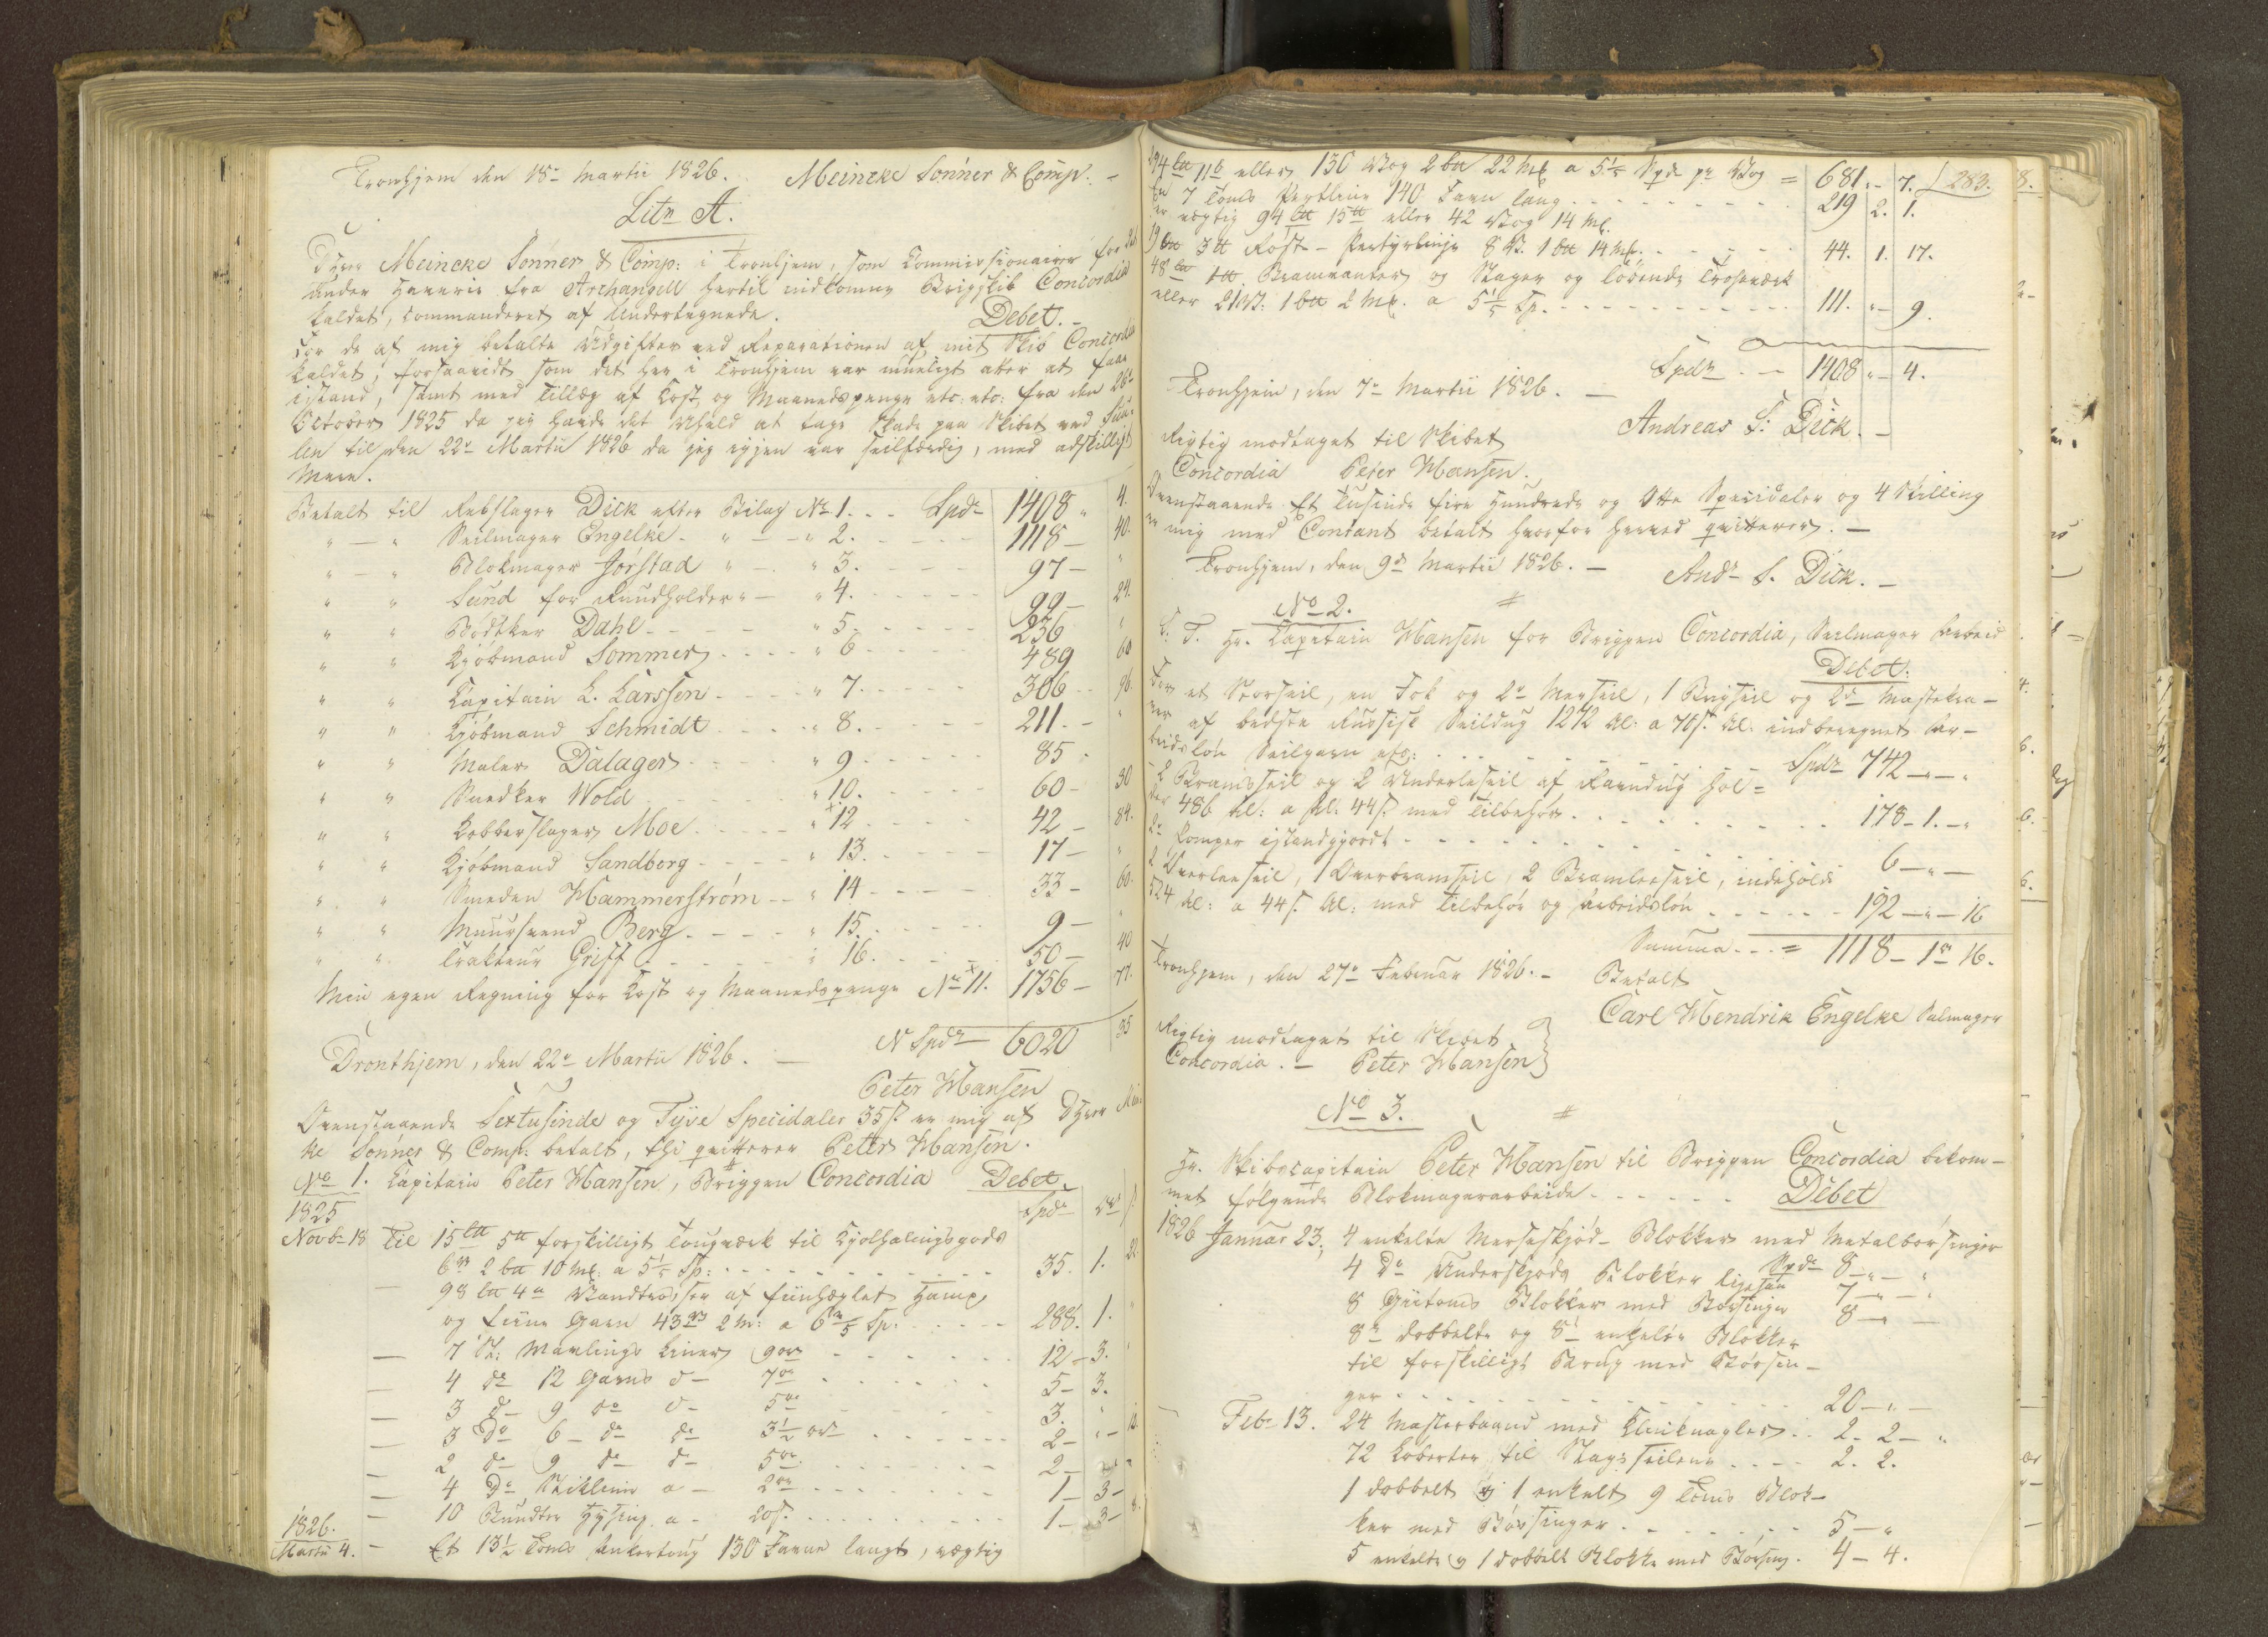 Tronhjem den 18de Martii 1826. Meincke Sönner & Comp. –
Litr A.
Dhrr Meincke Sönner & Comp: i Tronhjem, som Commissionairer for det
under Havarie fra Archangell hertil indkomne Brigskib Concordia
kaldet, commanderet af Undertegnede. Debet. –
For de af mig betalte Udgifter ved Reparationen af mit Skib Concordia
kaldet, forsaavidt som det her i Tronhjem var mueligt atter at faae
istand, samt med Tillæg af Kost og Maanedspenge etc: etc: fra den 26de
October 1825 da jeg havde det Uheld at tage Skade paa Skibet ved
til den 22de Martii 1826 da jeg igjen var seilfærdig, med adskilligt
Mere.
Betalt til Rebslager Dick efter Bilag No 1. Spdr 1408 " 4.
" – " Seilmager Engelke " – " 2. 1118 – 40.
" – " Blokmager Jörstad " – " 3. 97 – "
" " Sund for Ruudholder " – " 4. 99 – 24.
" " Bödtker Dahl " 5. 236 "
" " Kjöbmand Sommer " 6 489 60
" " Capitain L. Larssen " 7. 306 96.
" " Kjöbmand Schmidt " 8. 211. – "
" " Maler Dalager " 9 85 .
" " Snedker Wold " 10. 60 – 30
" " Kobberslager Moe " 12 42 – 84.
" " Kjöbmand Sandborg " 13. 17 – "
" " Smeden Hammerström " 14 33 – 60.
" " Muursvend Berg " 15. 9 – "
" " Tracteur Griff " 16. 50 – 40
Min egen Regning for Kost og Maanedspenge No 11. 1756 – 77.
N Spdr 6020 35
Dronthjem, den 22de Martii 1826. –
Peter Hansen
Ovenstaaende Sextusinde og Tyve Speciedaler 35 s. er mig af Dhrr Mein
ke Sönner & Comp: betalt, thi qvitterer Peter Hansen.
No 1. Capitain Peter Hansen, Briggen Concordia Debet.
1825 Spdr
Novbr 18 Til 15 5 forskilligt Tougværk til Kjölhalingsgods
6 2 10 Mk: a 5 1/5 Sp: 35. 1. 22.
– 98 4 Vandtrosser af fiinheglet Hamp
og fiine Garn 43 2 M: a 6 Sp. 288. 1. "
– 7 St: Mærlings Liner 9 12 – 3.
– 4 do 12 Garns do 7 5 – 3.
– 3 do 9 do do 5 3. "
– 3 Do 6 do do 3 1/2 2 – " – 12
– 2 do 9 do do 5 2 – "
– 4 Do Stiklinie a – 2 1 – 3 –
– 10 Bundter Hysing a – 20 s. 1 – 3 – 8.
1826.
Martii 4. – Et 13 1/2 Toms Ankertoug 130 Favne langt, vægtig
294 11 eller 130 Vog 2 22 Mk a 5 1/5 Spdr pr Vog = 681. – 7. 283.
En 7 Toms Pertline 140 Favn lang 219 2. 1.
er vægtig 94 15 eller 42 Vog 14 Mk.
19 3 Röst – 8 V. 1 14 Mk: 44. 1. 17.
48 1 Bramvanter og Stager og löbende Trosværk
eller 21 V: 1 2 Mk. a 5 1/5 Sp. 111. " – 9.
Spdr 1408 " – 4.
Tronhjem, den 7de Martii 1826. –
Andreas S: Dick. –
Rigtig modtaget til Skibet
Concordia Peter Hansen.
Ovenstaaende Et Tusinde fire Hundrede og Otte Speciedaler og 4 Skilling
er mig med Contant betalt hvorfor herved qvitteres. –
Tronhjem, den 9de Martii 1826. –
Andr S. Dick. –
No 2.
S. T. Hr. Capitain Hansen for Briggen Concordia, Seilmager Arbeid
Debet.
For et Storseil, en Fok og 2de Merseil, 1 Bugseil og 2de Mastekra –
ver af bedste Russisk Seildug 1272 Al: a 70 s. Al: indberegnet Ar –
beidslön Seilgarn etc: Spdr 742 – " – "
2 Bramseil og 2 Underleseil af Ravndug hol =
der 486 Al: a Al: 44 s. med Tilbehör 178 – 1. – "
2de Pomper istandgjordt 6 – " –
2 Overleeseil, 1 Overbramseil, 2 Bramleeseil, indeholdr
524 Al: a 44 s. Al: med Tilbehör og Arbeidslön 192 – " – 16
Summa = 1118 – 1 16.
Tronhjem, den 27de Februar 1826. – Betalt
Carl Hendrik Engelke Salmager
Rigtig modtaget til Skibet
Concordia. – Peter Hansen
No 3.
Hr. Skibscapitain Peter Hansen til Briggen Concordia bekom –
met fölgende Blokmagerarbeide Debet
1826 Januar 23; 4 enkelte Merseskjöd – Blokker med Metalbörsinger
Spdr 8 – " – "
4 Do Underskjöds Blokker ligesaa 7 – " – "
8 Blokker med Börsinger 8 – " –
8 dobbelte og 8 enkelte Blokker
til forskilligt Brug med Börsin –
ger 20 – " –
Febr 13. 24 Masterbaand med Klinknagler 2. 2 – "
72 til Stagseilene 2. 2.
1 dobbelt og 1 enkelt 9 Toms Blok –
ker med Börsinger 5 – "
5 enkelte og 1 dobbelt Blokke med Börsing. 4 – 4.